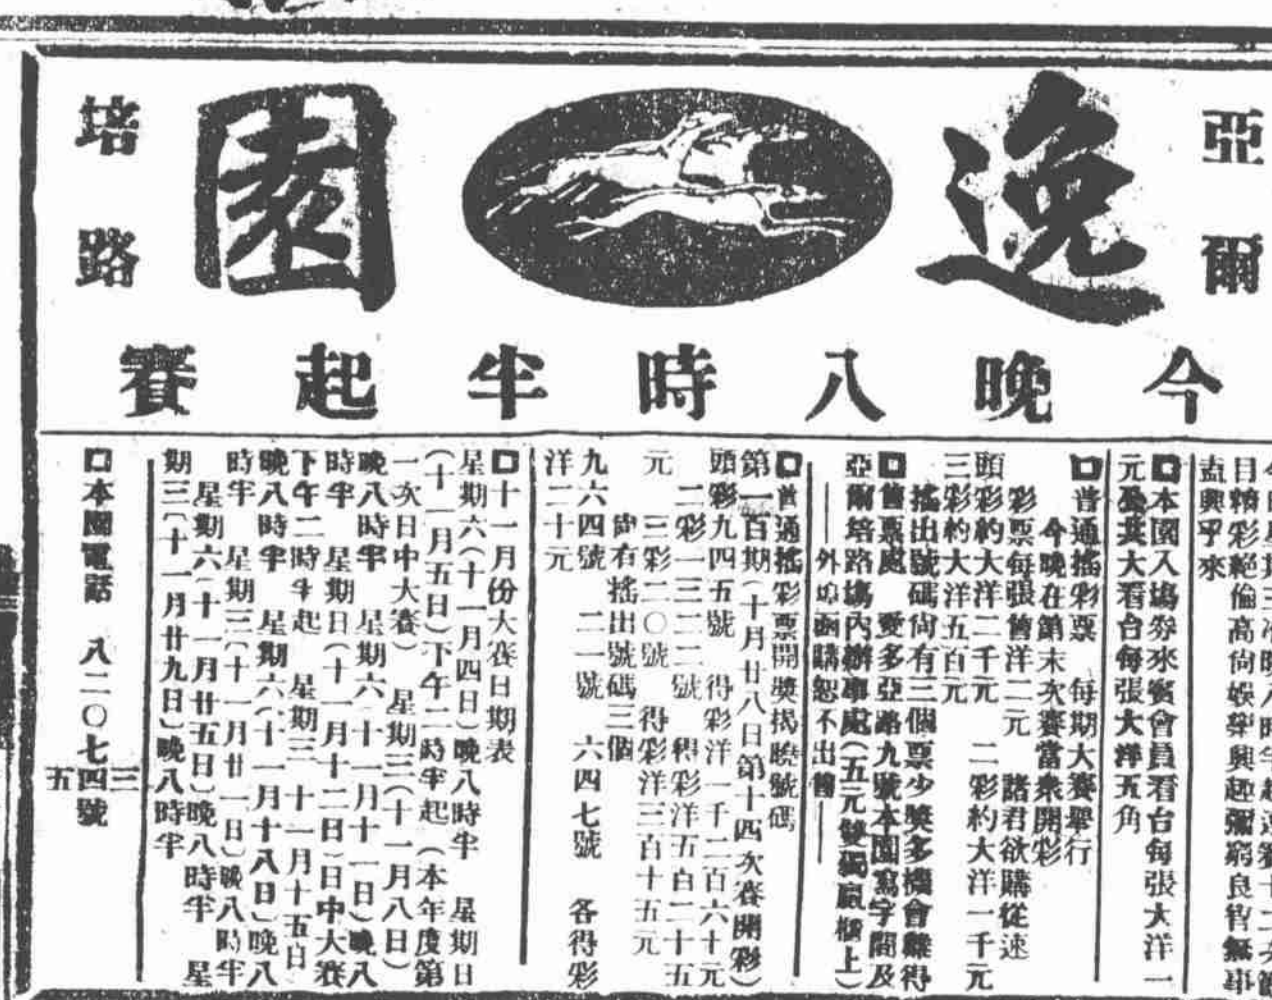 亞爾培路
逸園
今晚八時半起賽
目精彩絕倫高尚娛樂興趣彌窮良宵無事
盍興乎來
本園入塲券來賓會員看台每張大洋一
元公共大看台每張大洋五角
普通搖彩票　每期大賽舉行
今晚在第末次賽當衆開彩
彩票每張售洋二元　諸君欲購從速
頭彩約大洋二千元　二彩約大洋一千元
三彩約大洋五百元
搖出號碼尚有三個票少獎多機會難得
售票處　愛多亞路九號本園寫字間及
亞爾培路塲內辦事處(五元雙獨贏櫃上)
——外埠函購恕不出售——
普通搖彩票開獎揭曉號碼
第一百期(十月廿八日第十四次賽開彩)
頭彩九四五號　得彩洋一千二百六十元
二彩一三二二號　得彩洋五百二十五
元　三彩二〇號　得彩洋三百十五元
尙有搖出號碼三個
九六四號　二一號　六四七號　各得彩
洋二十元
十一月份大賽日期表
星期六(十一月四日)晚八時半　星期日
(十一月五日)下午二時半起　(本年度第
一次日中大賽)　星期三(十一月八日)
晚八時半　星期六(十一月十一日)晚八
時半　星期日(十一月十二日)日中大賽
下午二時半起　星期三　十一月十五日
晚八時半　星期六(十一月十八日)晚八
時半　星期三(十一月廿一日)晚八時半
星期六(十一月廿五日)晚八時半　星
期三(十一月廿九日)晚八時半
本園電話　八二〇七四號
三
五